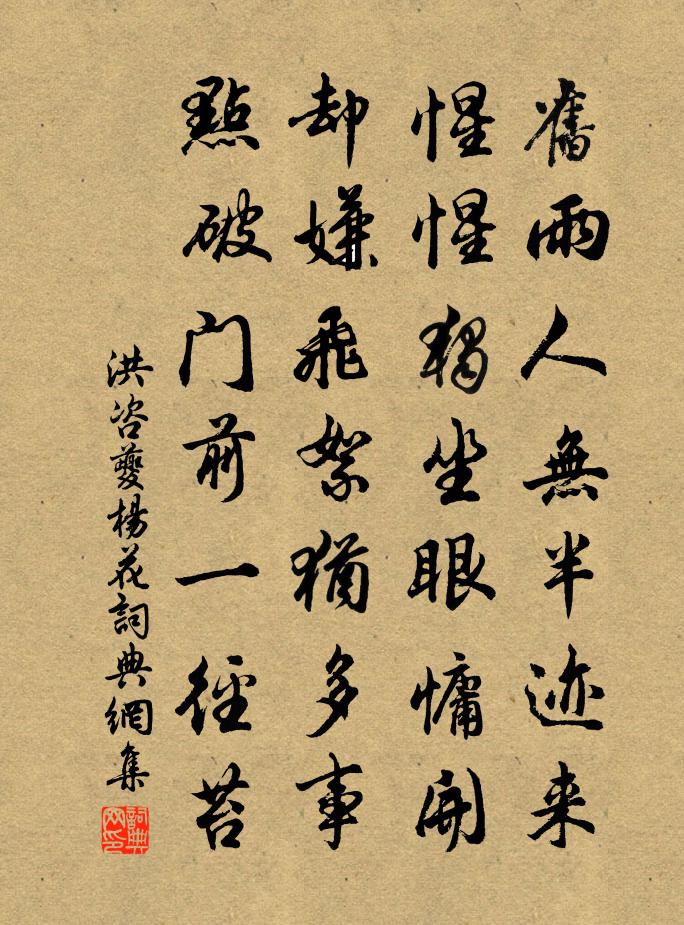 舊雨人無半迹来
惺惺獨坐眼慵開
却嫌飛絮猶多事
點破门前一徑苔
洪咨夔楊花詞典網集
詞典网印